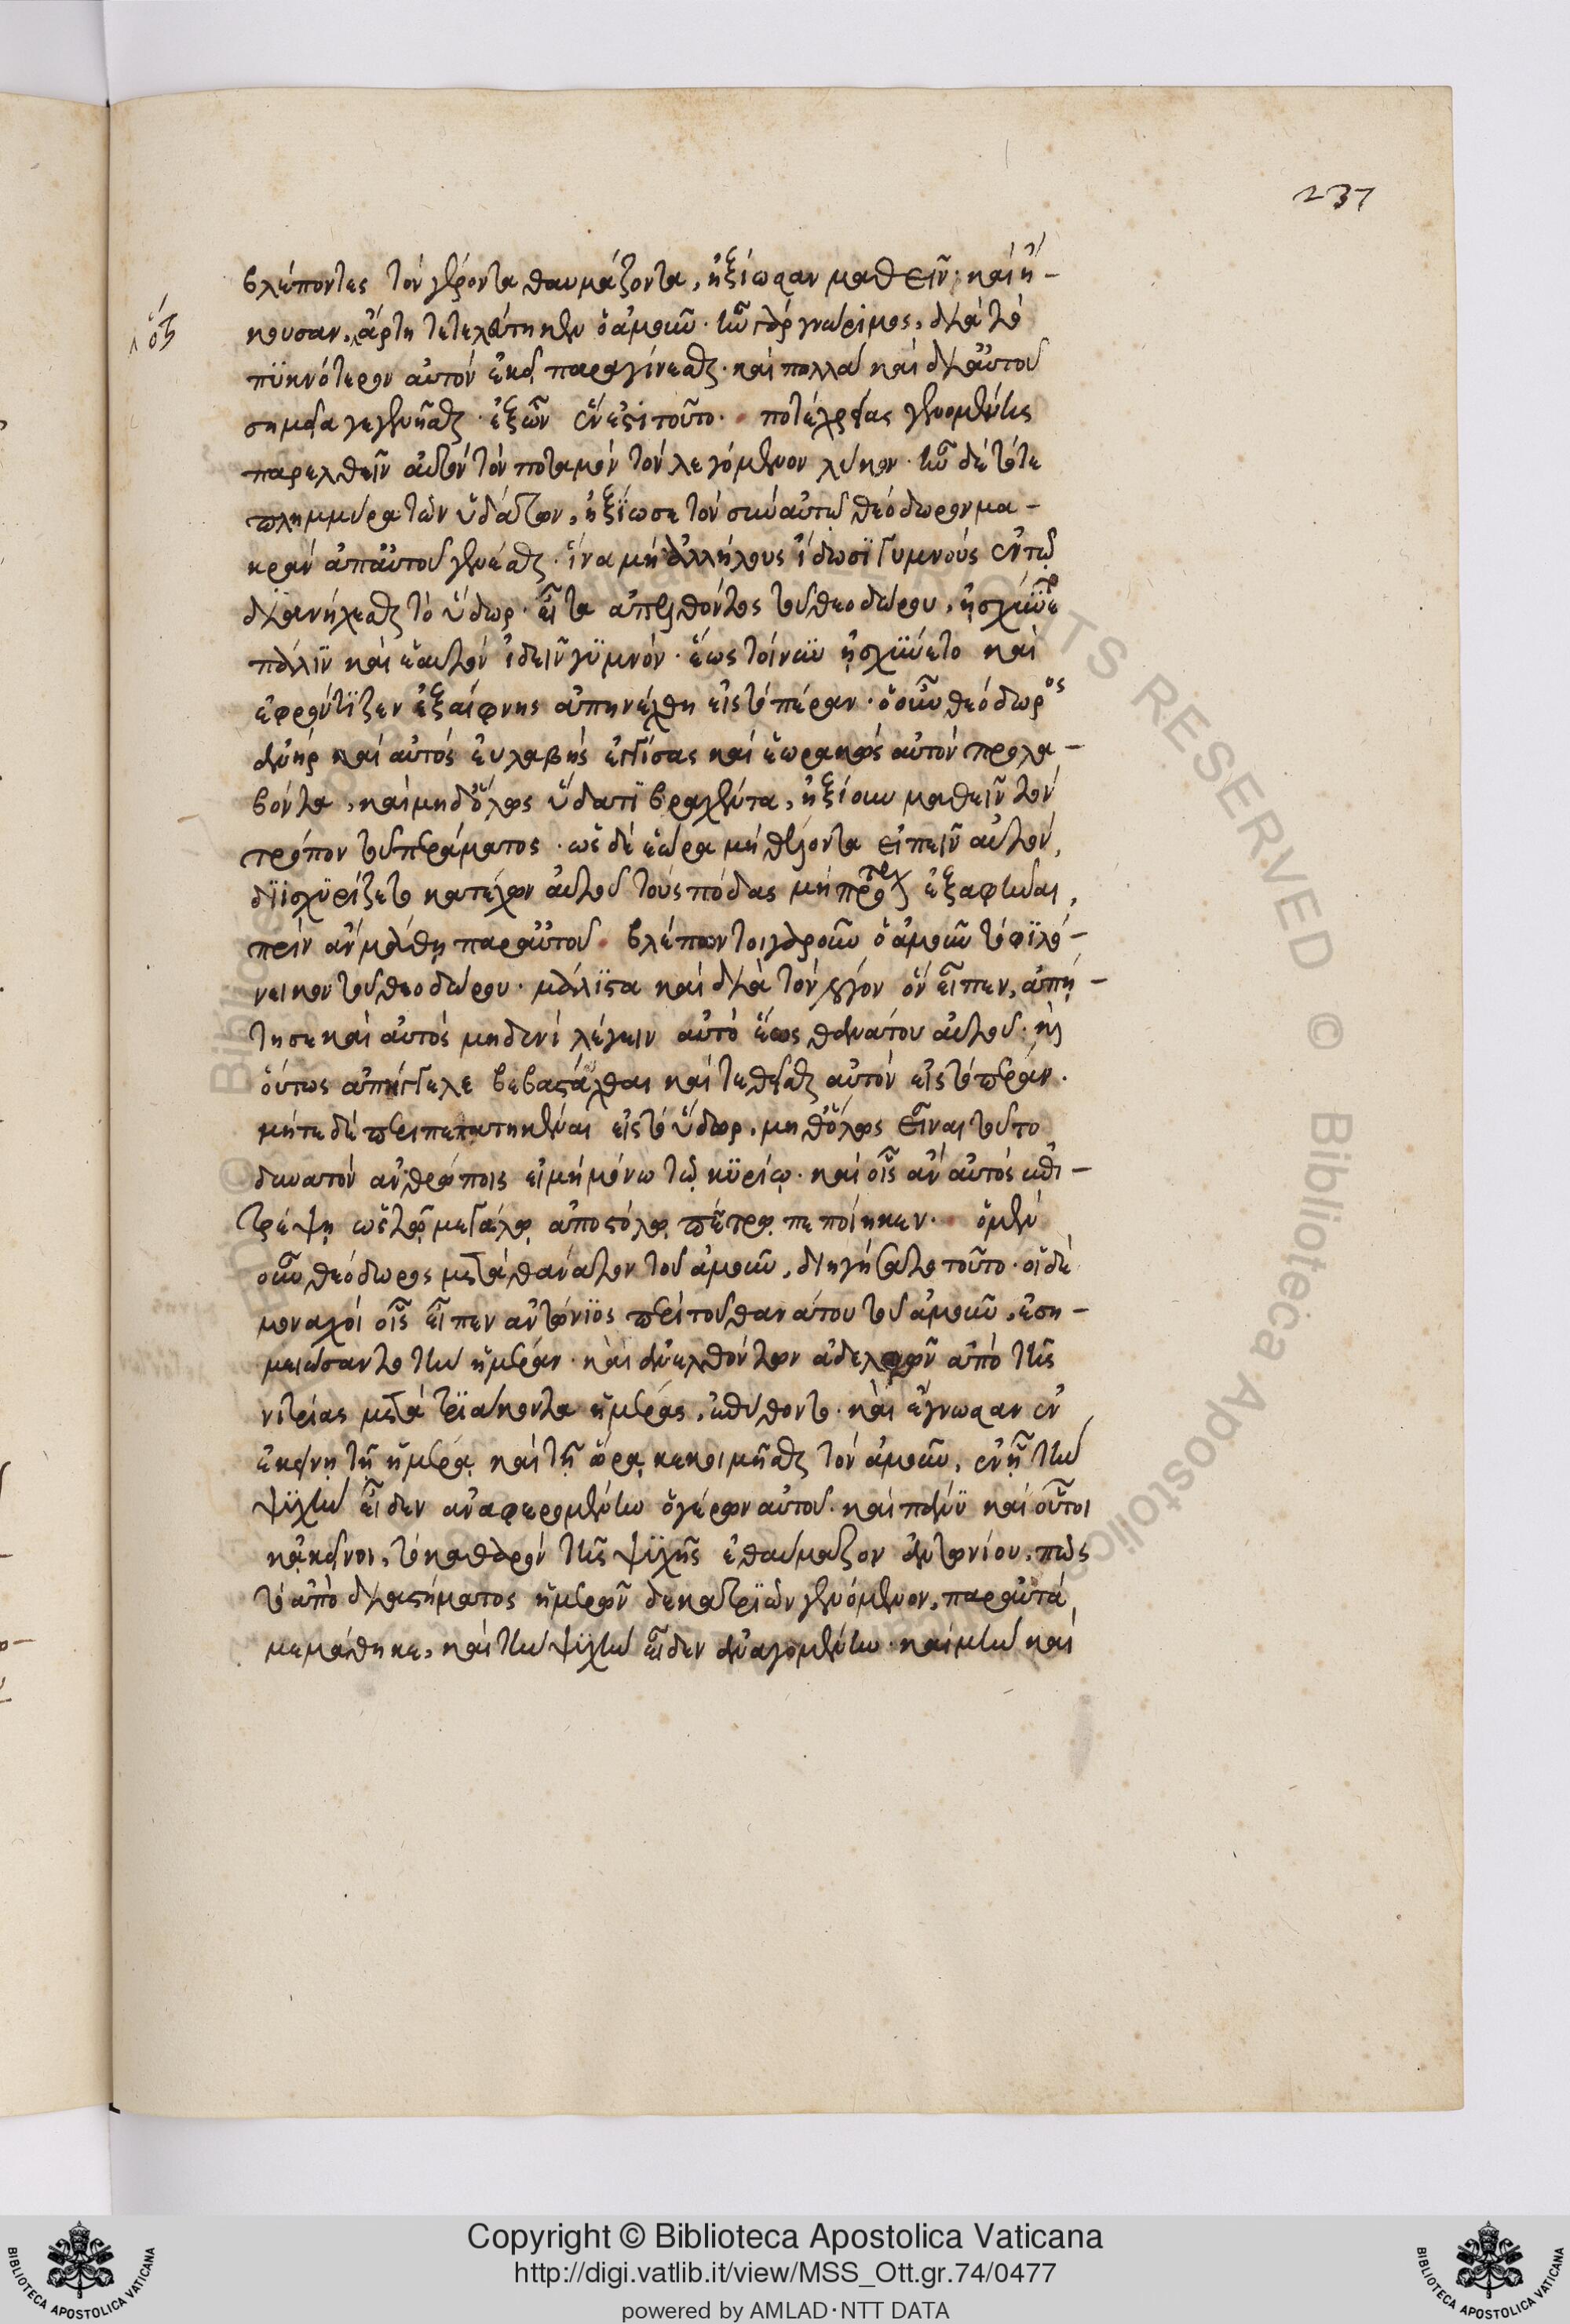 237
βλέποντες τὸν γέροντα θαυμάζοντα, ἠξίωσαν μαθεῖν· καὶ ἤ-
κουσαν, ἄρτι τετελεύτηκεν ὁ ἀμοῦν. ἦν γὰρ γνώριμος, διὰ τὸ
ὅτι
πϋκνότερον αὐτὸν ἐκεῖ παραγίνεσθαι· καὶ πολλὰ καὶ δι' αὐτοῦ
σημεῖα γεγενῆσθαι· ἐξ ὧν ἓν ἐστὶ τοῦτο. ποτὲ χρείας γενομένης
παρελθεῖν αὐτὸν τὸν ποταμὸν τὸν λεγόμενον λύκον· ἦν δὲ τότε
πλημμύρα τῶν ὑδάτων, ἠξίωσε τὸν σὺν αὐτῷ θεόδωρον μα-
κρὰν ἀπ' αὐτοῦ γενέσθαι· ἵνα μὴ ἀλλήλους ἴδωσϊ γυμνοὺς ἐν τῷ
διανήχεσθαι τὸ ὕδωρ· εἶτα ἀπελθόντος τοῦ θεοδώρου, ἠσχύνετο
πάλϊν καὶ ἑαυτὸν ἰδεῖν γϋμνόν· ἕως τοίνυν ἠσχϋνετο καὶ
ἐφρόντϊζεν ἐξαίφνης ἀπηνέχθη εἰς τὸ πέραν· ὁ οὖν θεόδωρος
ἀνὴρ καὶ αὐτὸς εὐλαβὴς ἐγγίσας καὶ ἑωρακὼς αὐτὸν προλα-
βόντα, καὶ μηδ' ὅλως ὕδατϊ βραχέντα, ἠξίου μαθεῖν τὸν
τρόπον τοῦ περάματος· ὡς δὲ ἑώρα μὴ θέλοντα εἰπεῖν αὐτόν,
δϊϊσχϋρίζετο κατέχων αὐτοῦ τοὺς πόδας μὴ πρότερον ἐξαφεῖναι,
πρὶν ἂν μάθῃ παρ' αὐτοῦ. βλέπων τοιγαροῦν ὁ ἀμοῦν τὸ φϊλό-
νεικον τοῦ θεοδώρου· μάλϊστα καὶ διὰ τὸν λόγον ὃν εἶπεν, ἀπῄ-
τησε καὶ αὐτὸς μηδενὶ λέγειν αὐτὸ ἕως θανάτου αὐτοῦ· καὶ
οὕτως ἀπήγγειλε βεβαστάχθαι καὶ τεθεῖσθαι αὐτὸν εἰς τὸ πέραν.
μήτε δὲ περιπεπατηκέναι εἰς τὸ ὕδωρ, μηθ' ὅλως εἶναι τοῦτο
δυνατὸν ἀνθρώποις εἰ μὴ μόνω τῷ κϋρίῳ· καὶ οἷς ἂν αὐτὸς ἐπι-
τρέψῃ ὡς τῷ μεγάλῳ ἀποστόλῳ πέτρῳ πεποίηκεν. ὁ μὲν
οὖν θεόδωρος μετὰ θάνατον τοῦ ἀμοῦν, διηγήσατο τοῦτο· οἱ δὲ
μοναχοὶ οἷς εἶπεν ἀντώνϊος περὶ τοῦ θανάτου τοῦ ἀμοῦν, ἐση-
μειώσαντο τὴν ἡμέραν· καὶ ἀνελθόντων ἀδελφῶν ἀπὸ τῆς
νιτρίας μετὰ τρϊάκοντα ἡμέρας, ἐπύθοντο· καὶ ἔγνωσαν ἐν
ἐκείνῃ τῇ ἡμέρᾳ καὶ τῇ ὥρᾳ κεκοιμῆσθαι τὸν ἀμοῦν, ἐν ᾗ τὴν
ψϋχὴν εἶδεν ἀναφερομένην ὁ γέρων αὐτοῦ· καὶ πάλϊν καὶ οὗτοι
κἀκεῖνοι, τὸ καθαρὸν τῆς ψϋχῆς ἐθαύμαζον ἀντωνίου, πῶς
τὸ ἀπὸ διαστήματος ἡμερῶν δεκατρϊῶν γενόμενον, παραυτὰ
μεμάθηκε, καὶ τὴν ψϋχὴν εἶδεν ἀναγομένην. καὶ μὴν καὶ
Copyright © Biblioteca Apostolica Vaticana
http://digi.vatlib.it/view/MSS_Ott.gr.74/0477
powered by AMLAD·NTT DATA
BIBLIOTECA APOSTOLICA VATICANA
BIBLIOTECA APOSTOLICA VATICANA